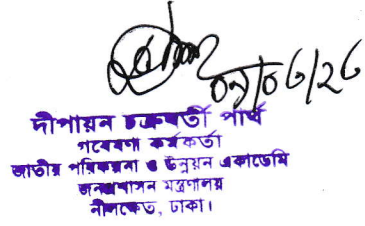 দীপায়ন চক্রবর্তী পার্থ
গবেষণা কর্মকর্তা
জাতীয় পরিকল্পনা ও উন্নয়ন একাডেমি
জনপ্রশাসন মন্ত্রণালয়
নীলক্ষেত, ঢাকা।